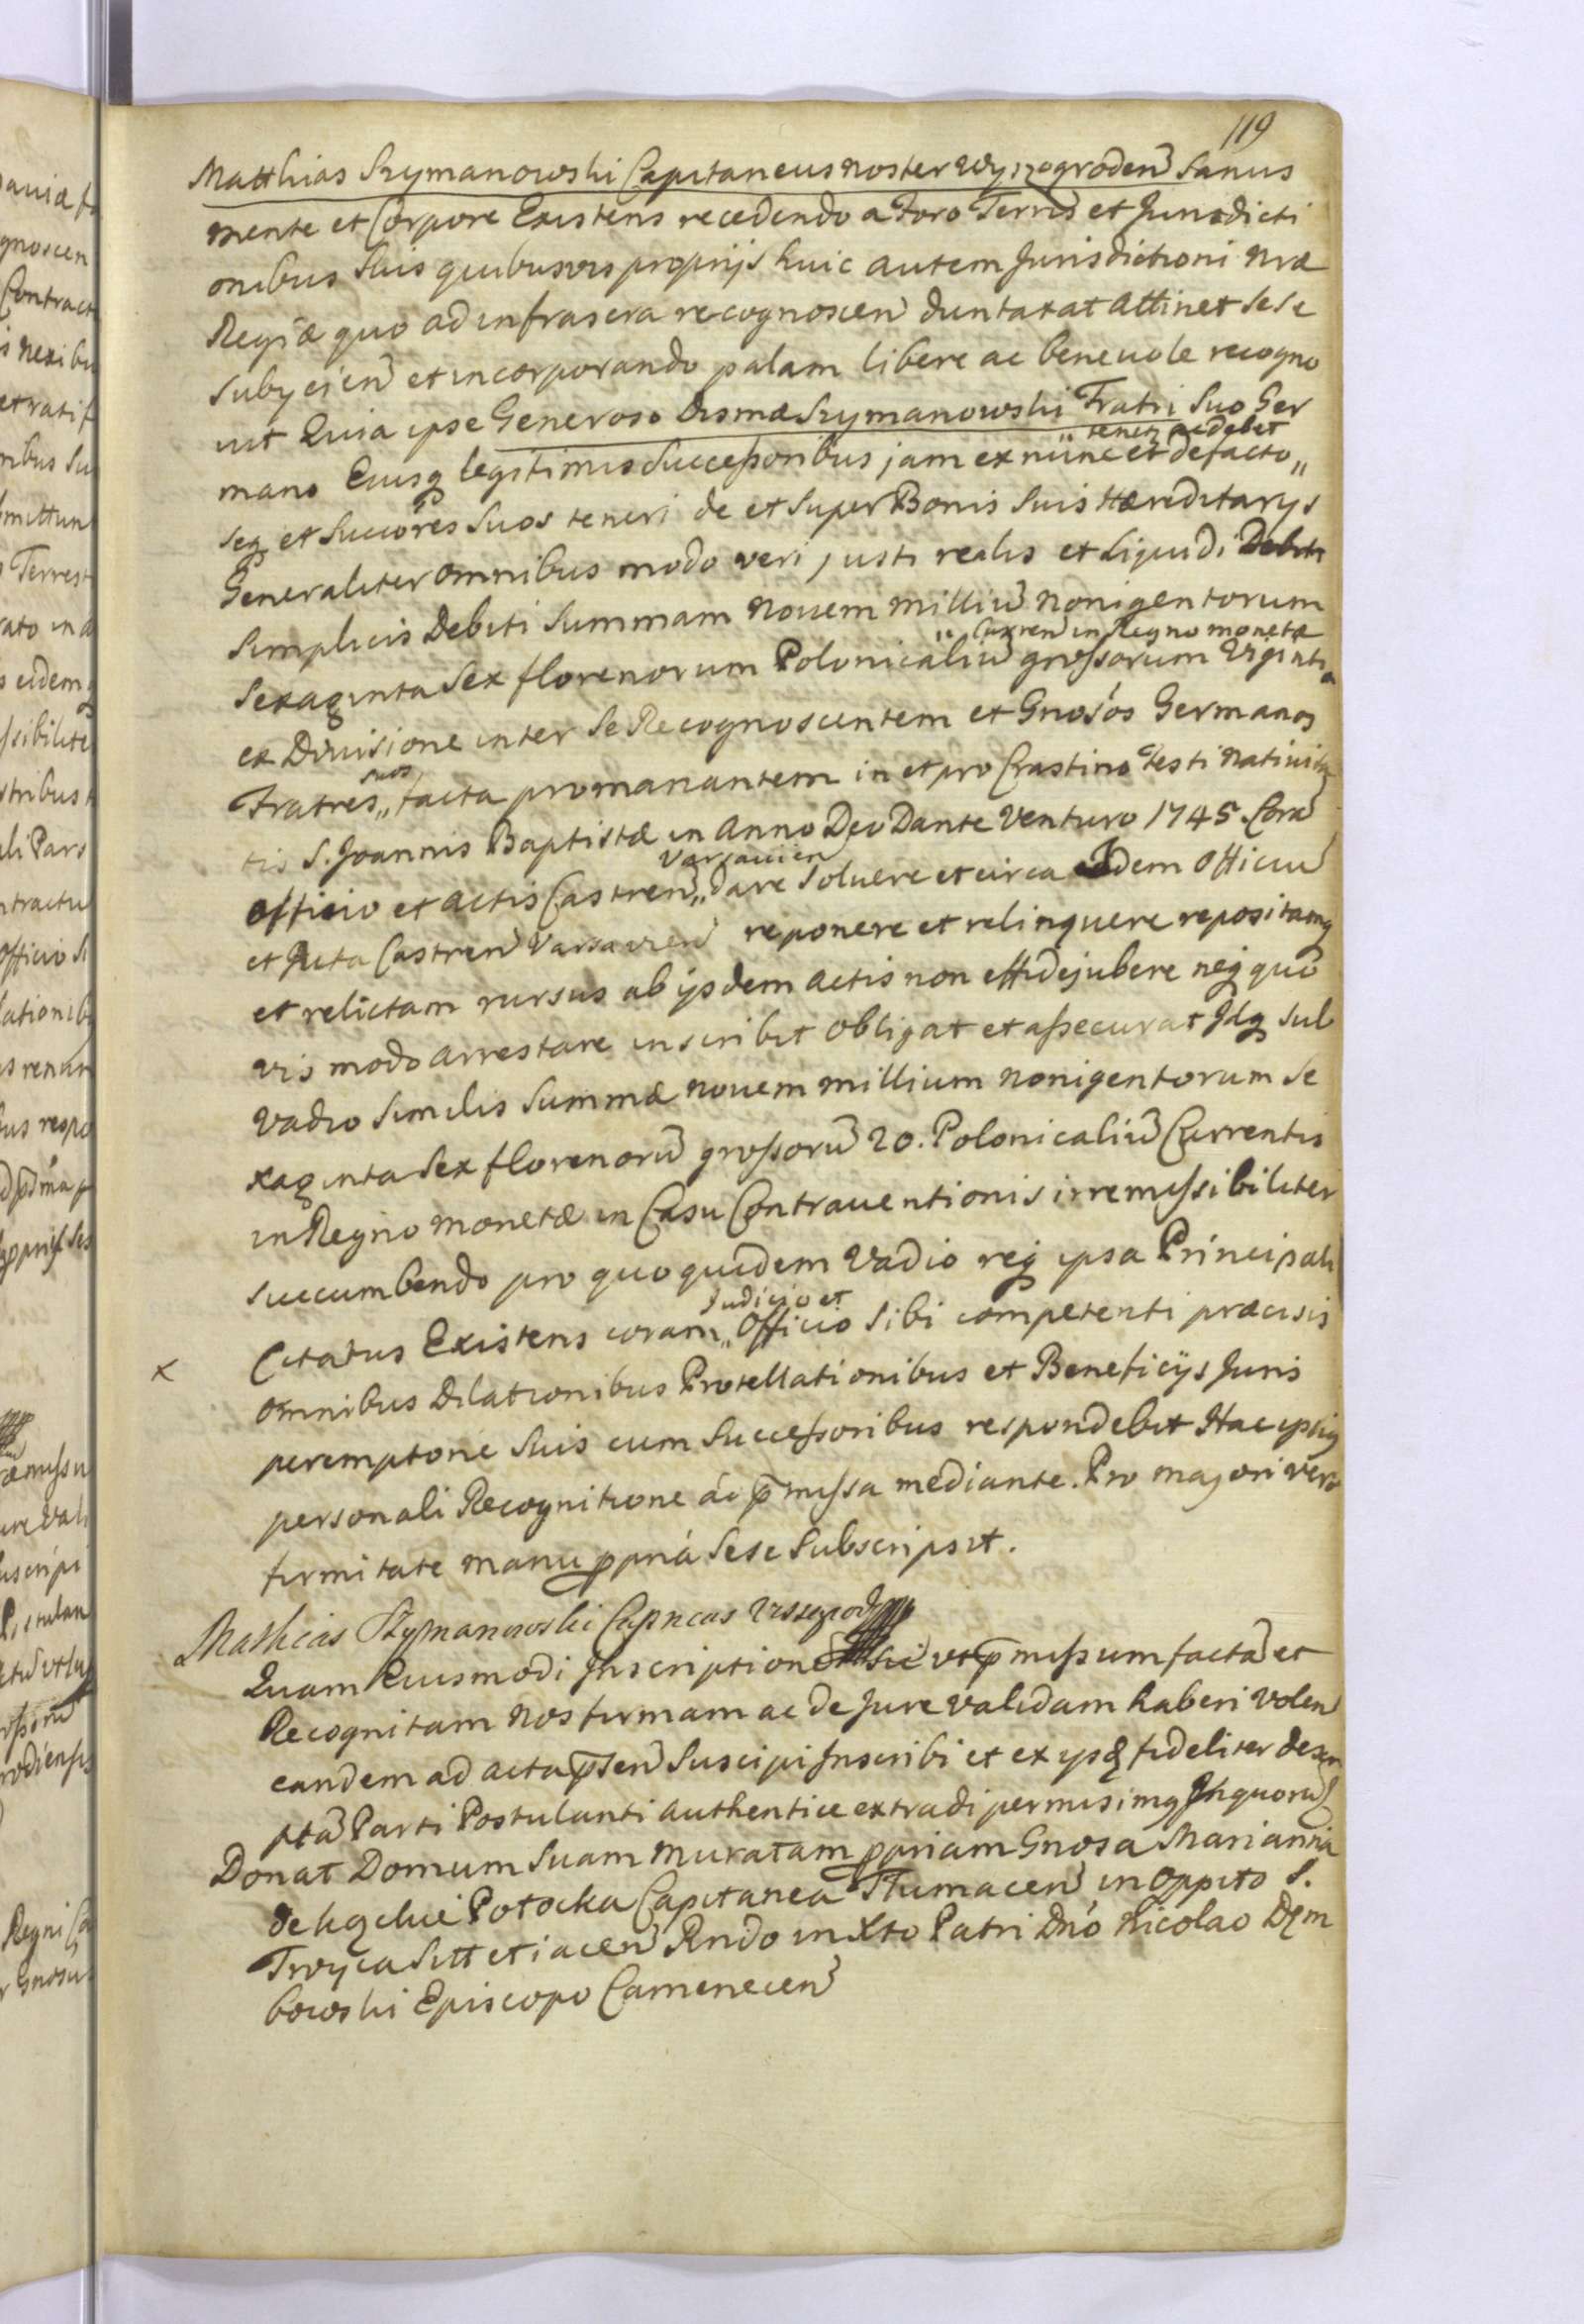 119
Matthias Szymanowski Capitaneus noster Wyszogroden Sanus
mente et Corpore Existens recedendo a Foro Terris et Jurisdicti
onibus Suis quibusvis proprijs huic autem Jurisdictioni nrae
Regiae quo ad infrascra recognoscen duntaxat attinet sese
subijcien et incorporando palam libere ac benevole recogno
vit Quia ipse Generoso Dismae Szymanowski Fratri Suo Ger
tenet ac debet
mano Eiusq legitimis Successoribus jam ex nunc et defacto
seq et Succores Suos teneri de et Super Bonis Suis Haereditarijs
Generaliter omnibus modo veri justi realis et Liquidi Debiti
Simplicis Debiti Summam Novem milliu nonigentorum
Curren in Regno monetae
Sexaginta Sex florenorum Polonicaliu grossorum Viginti
ex Divisione inter Se Recognoscentem et Gnosos Germanos
suos
Fratres facta promanantem in et pro Crastino Festi Nativita
tis S. Joannis Baptistae in Anno Deo Dante Venturo 1745. Cora
Varsavien
Officio et actis Castren dare Soluere et circa Idem Officiu
et Acta Castren Varsavien reponere et relinquere repositamq
et relictam rursus ab ijsdem actis non effidejubere neq quo
vis modo arrestare inscribit obligat et assecurat Idq sub
Vadio Similis Summae novem millium nonigentorum Se
xaginta Sex florenoru grossoru 20. Polonicaliu Currentis
in Regno monetae in Casu Contraventionis irremissibiliter
succumbendo pro quo quidem Vadio reqz ipsa Principali
Judicio et
Citatus Existens coram Officio Sibi competenti praecisis
x
omnibus Dilationibus Protellationibus et Beneficijs Juris
peremptorie Suis cum Successoribus respondebit Hac ipsius
personali Recognitione ac pmissa mediante. Pro majori vero
firmitate manu ppria Sese Subscripsit.
Mathias Szymanowski Capneus Wissegrod
Quam Eiusmodi Inscriptione sic ut pmissum facta et
Recognitam nos firmam ac de Jure validam haberi Volen
eandem ad acta psen Suscipi Inscribi et ex ijsq fideliter descri
pta Parti Postulanti authentice extradi permisimq In quoru
Donat Domum Suam muratam ppriam Gnosa Marianna
de Kącki Potocka Capitanea Tlumacen in Oppido S.
Troyca Sitt et iacen Rndo in Xto Patri Dno Nicolao Dęm
bowski Episcopo Camenecen